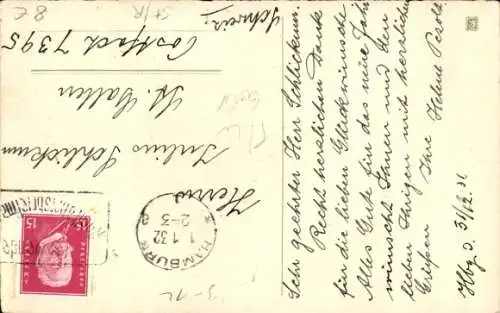 Sehr geehrter Herr Schlickum!
Recht herzlichen Dank
für die lieben Glückwünsche
Alles Gute für das neue Jahr
wünscht Ihnen und den
lieben Ihrigen mit herzlichen
Grüßen Ihre Helene
Hbg. d. 31/12.31
Herrn
Julius Schlickum
St. Gallen
Postfach 7395
Schweiz.
HAMBURG
1.1.32
2-3
15 15
8€
St/R